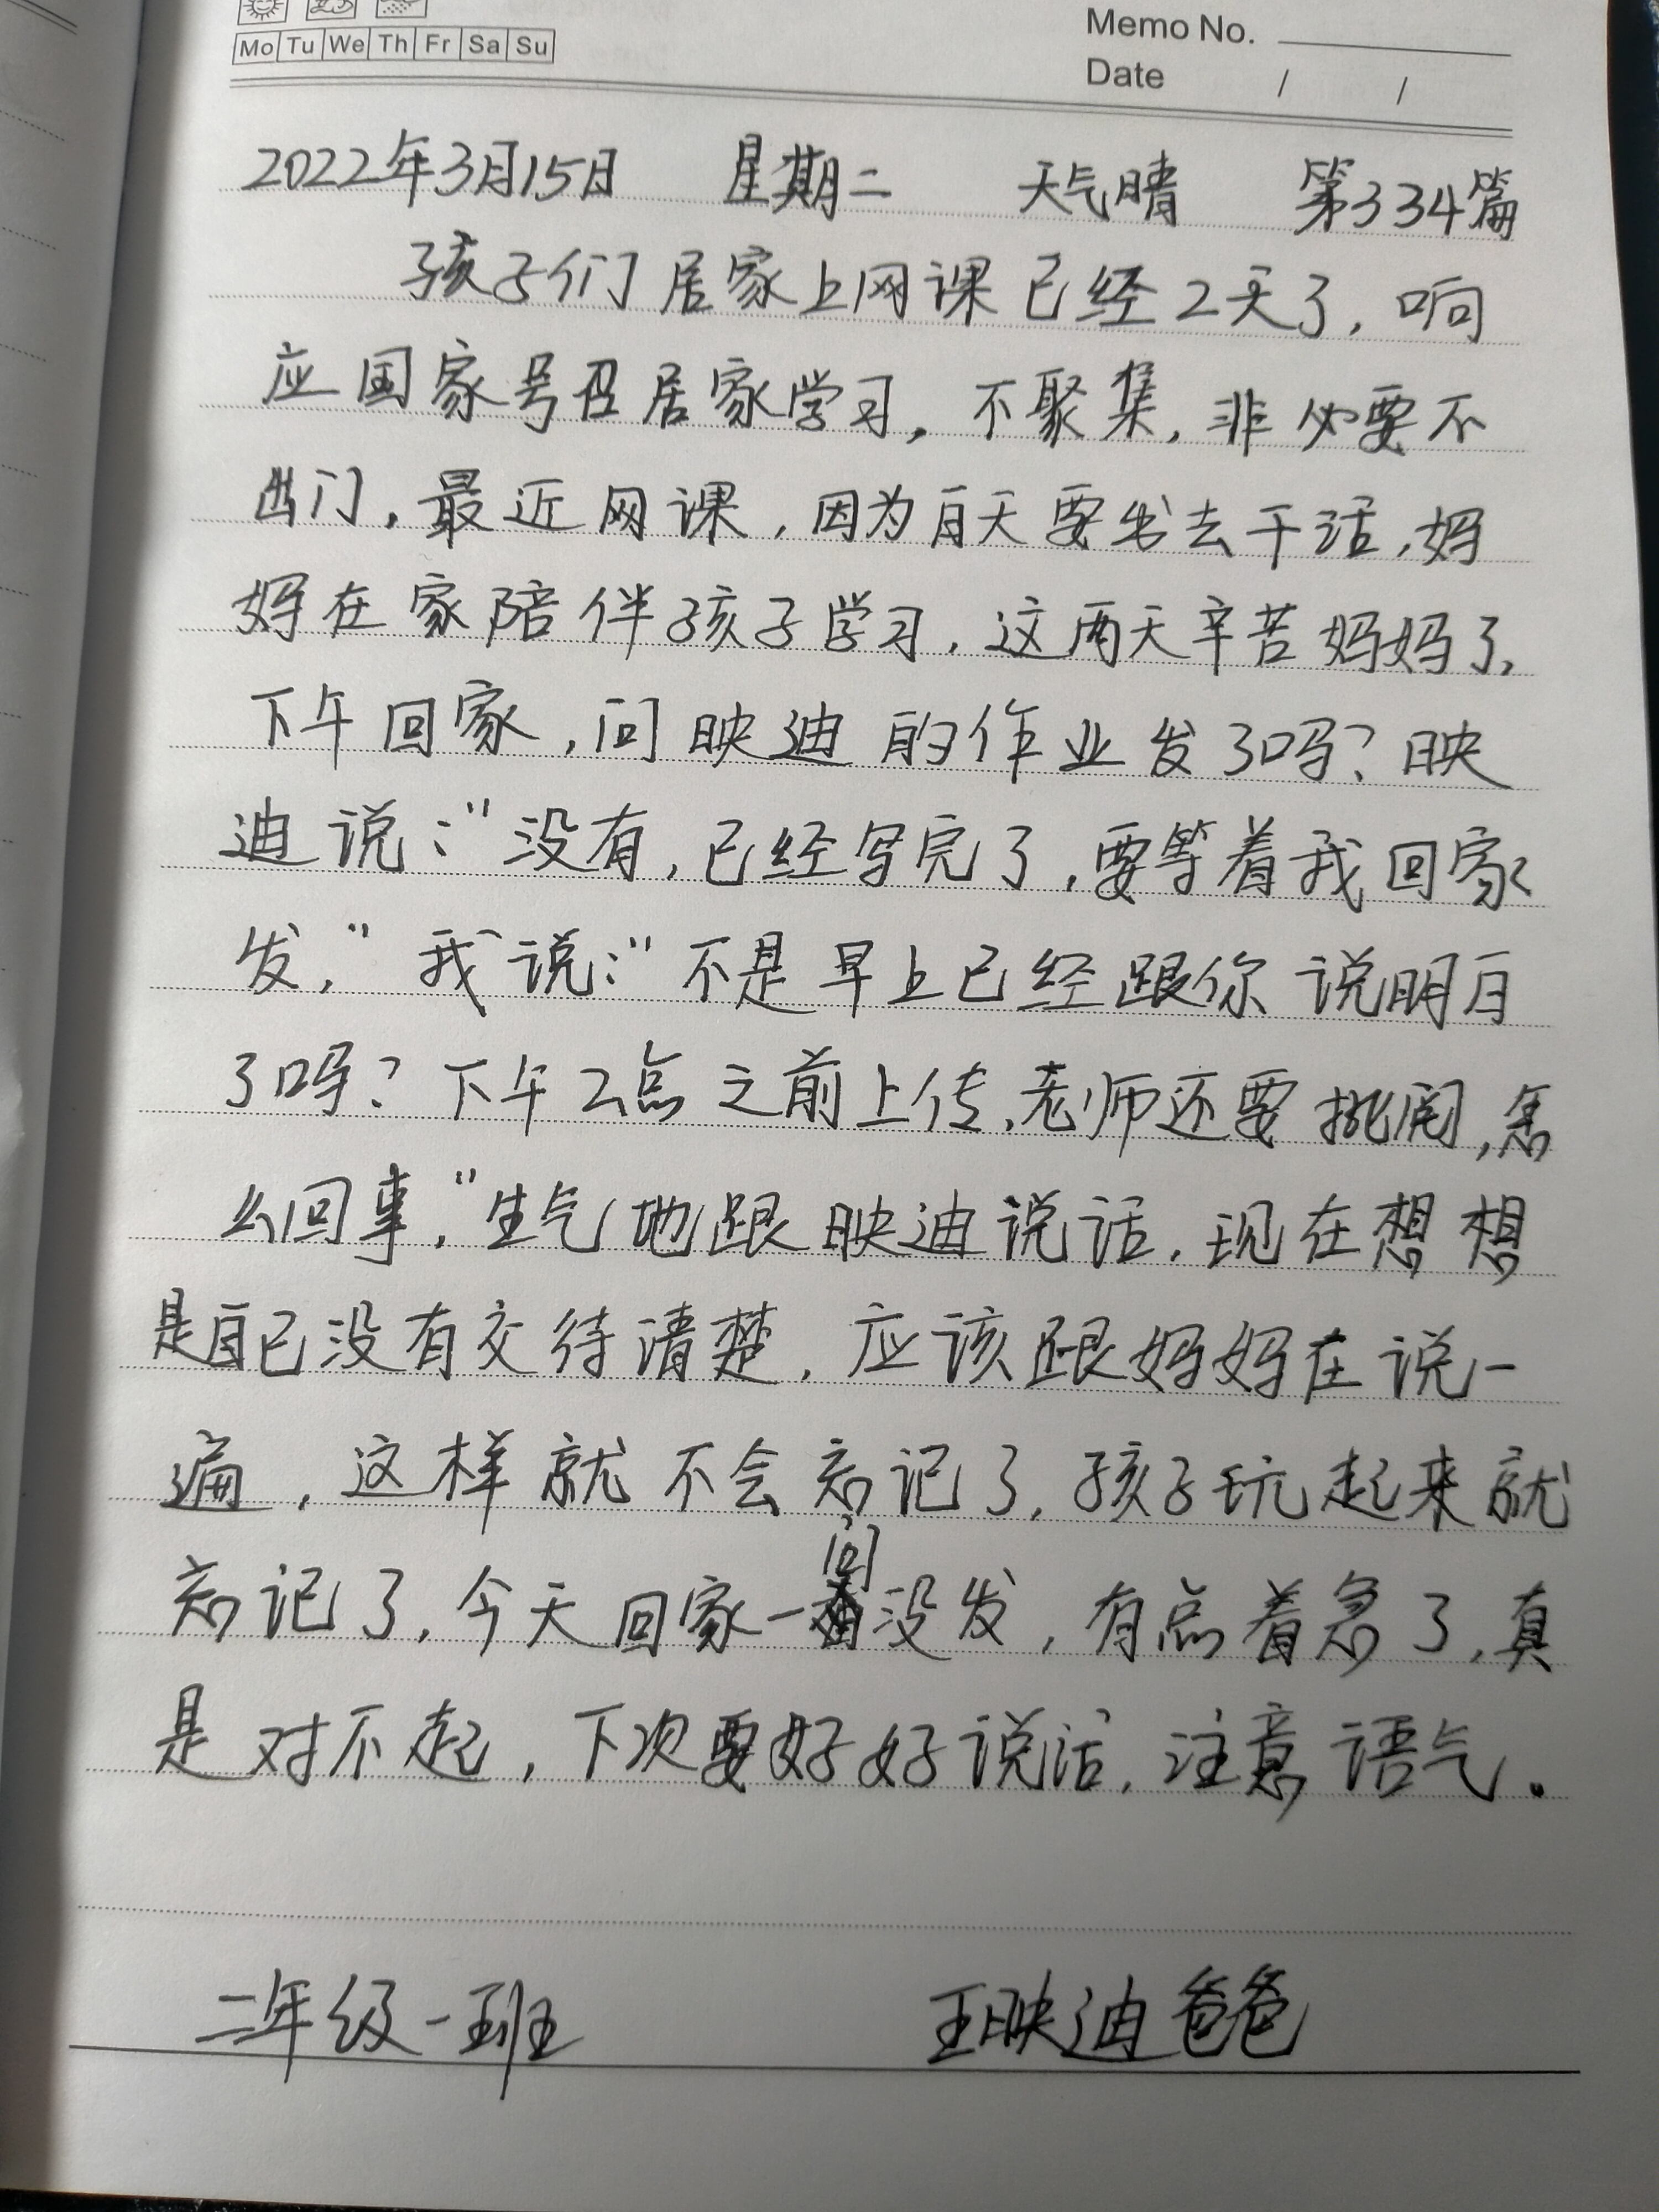 Mo Tu We Th Fr Sa Su
Memo No.
Date / /
2022年3月15日 星期二 天气晴 第334篇
孩子们居家上网课已经2天了,响
应国家号召居家学习,不聚集,非必要不
出门,最近网课,因为白天要出去干活,妈
妈在家陪伴孩子学习,这两天辛苦妈妈了,
下午回家,问映迪的作业发了吗?映
迪说:"没有,已经写完了,要等着我回家
发,"我说:"不是早上已经跟你说明白
了吗?下午2点之前上传,老师还要批阅,怎
么回事,"生气地跟映迪说话,现在想想
是自己没有交待清楚,应该跟妈妈在说一
遍,这样就不会忘记了,孩子玩起来就
忘记了,今天回家一问没发,有点着急了,真
是对不起,下次要好好说话,注意语气。
二年级一班 王映迪爸爸